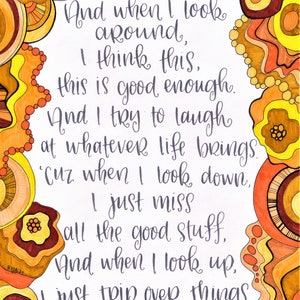 And when I look
around,
I think this,
this is good enough.
And I try to laugh
at whatever life brings.
'Cuz when I look down,
I just miss
all the good stuff,
And when I look up,
I just trip over things